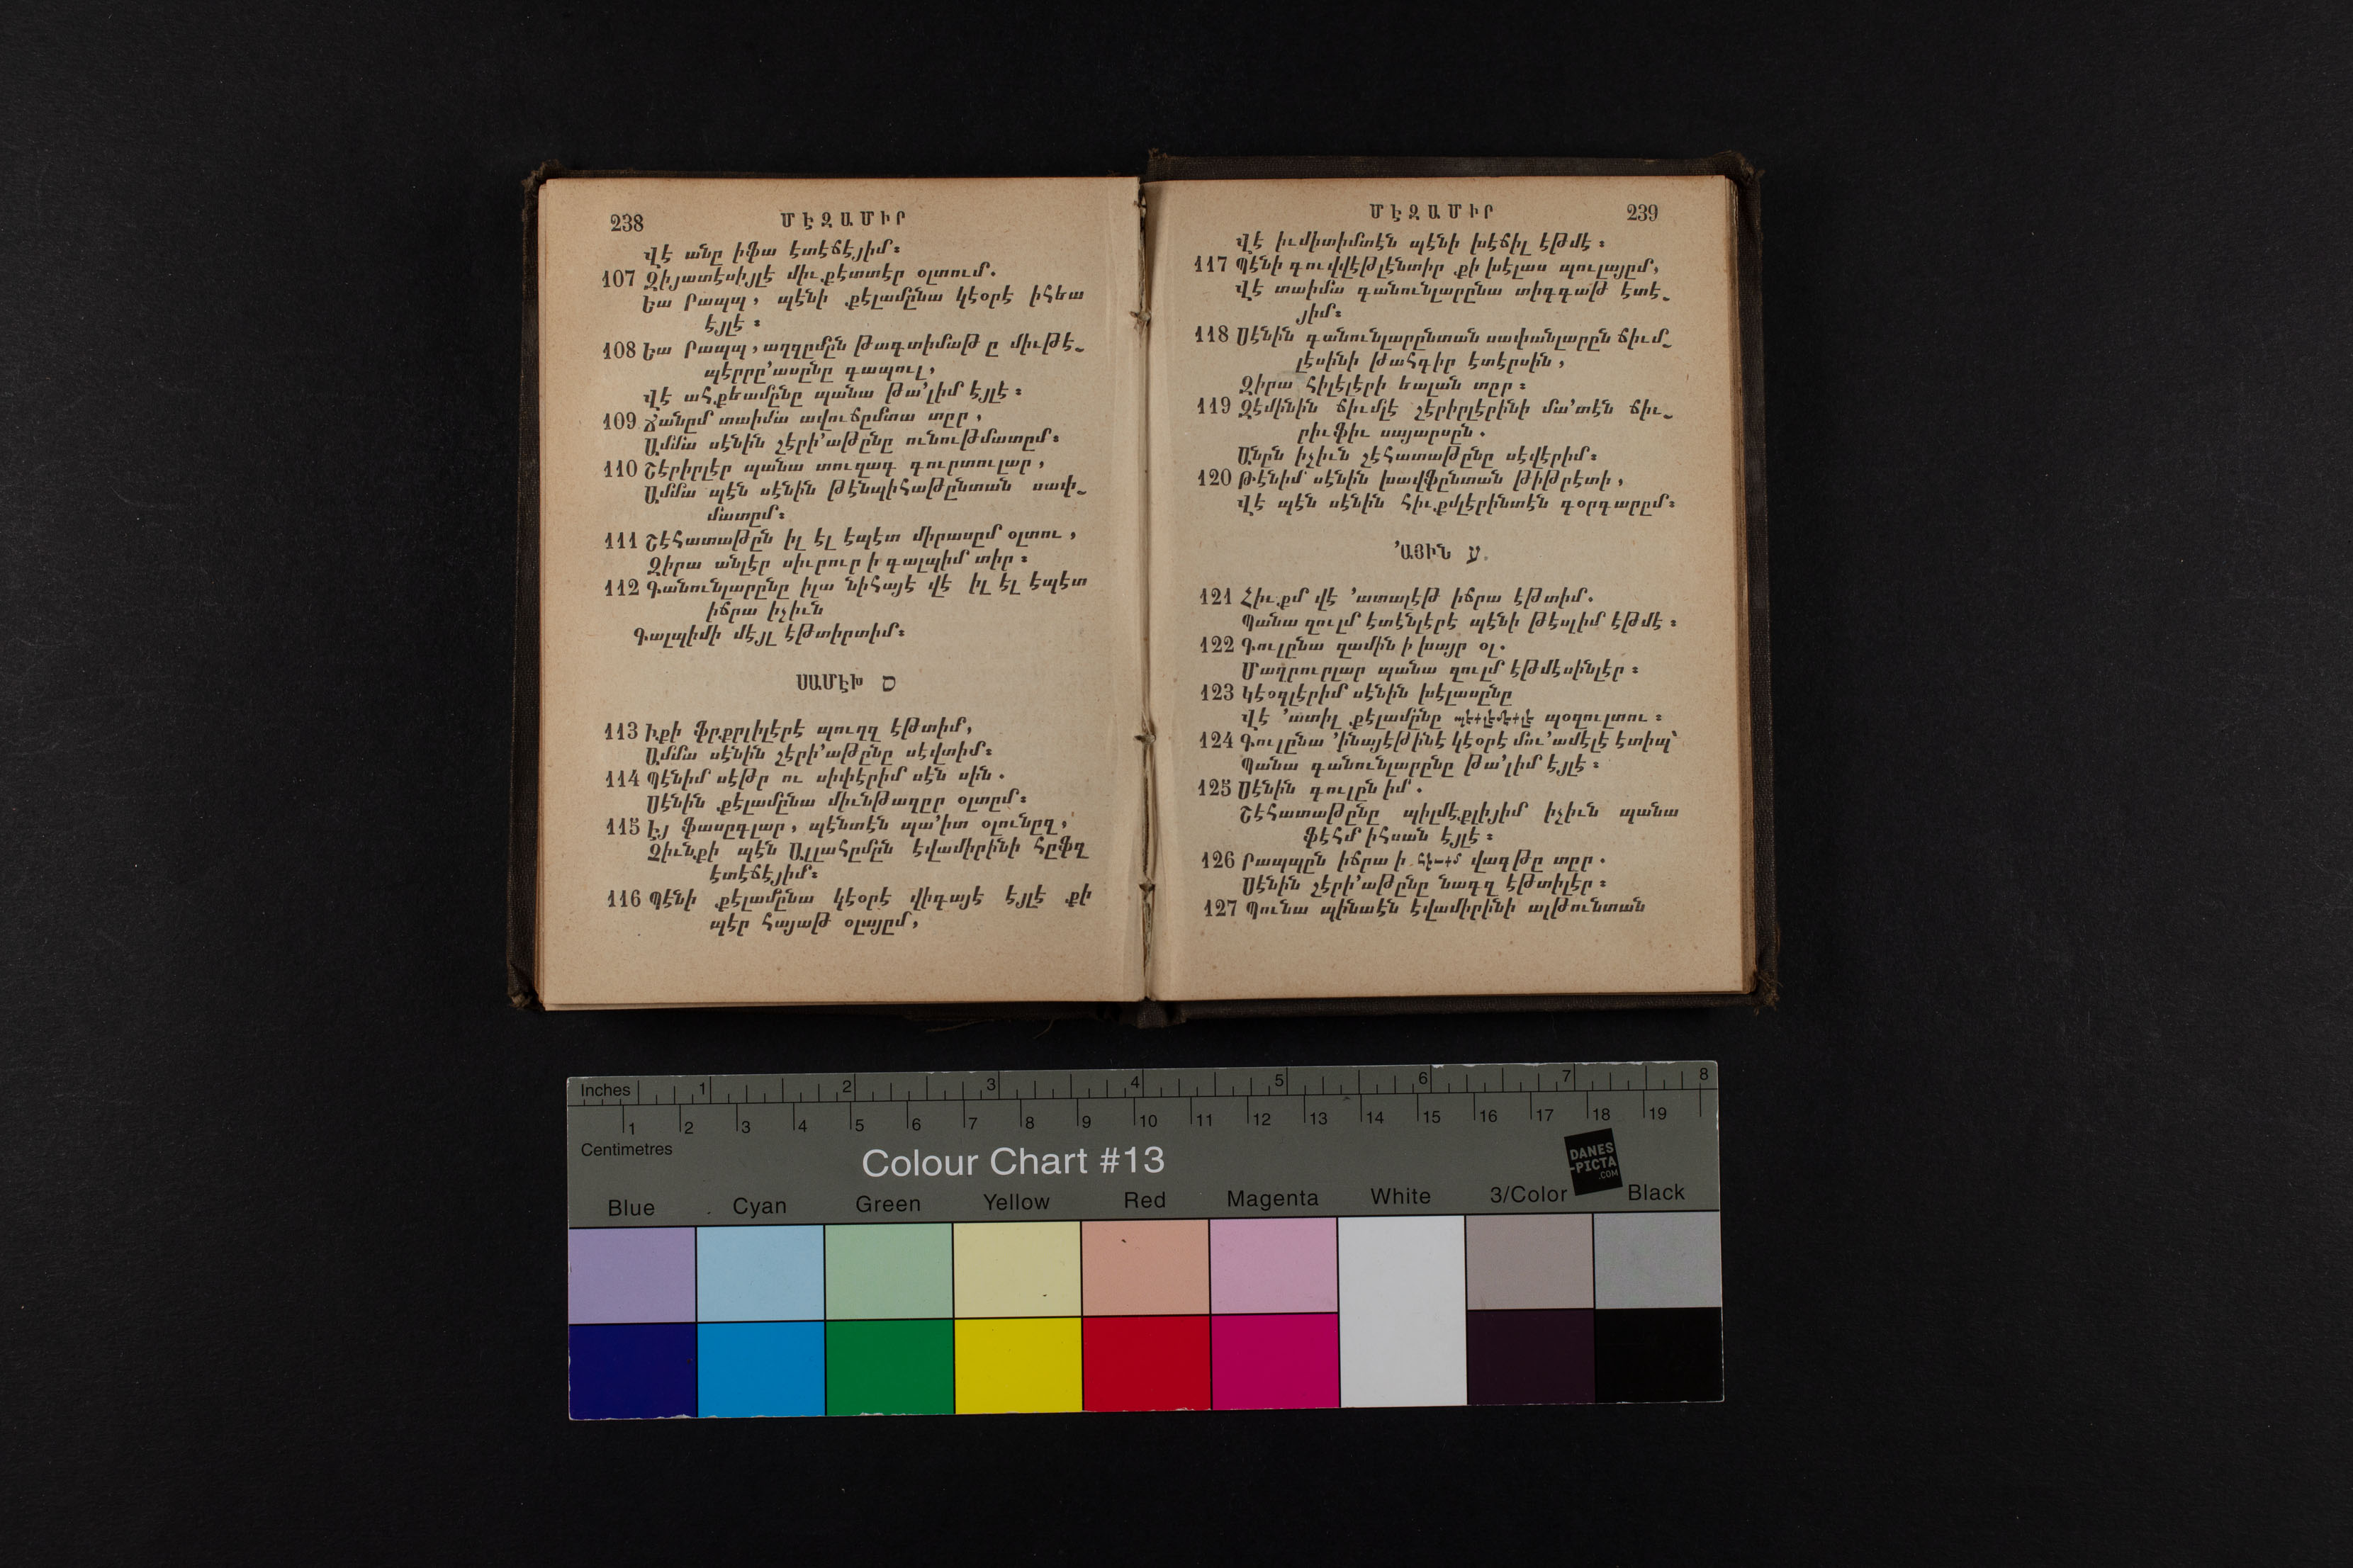 238 ՄԷԶԱՄԻՐ
Վէ անը իֆա էտէճէյիմ։
107 Զիյատէսիյլէ միւքէտտէր օլտում.
Եա Րապպ, պէնի քէլամընա կէօրէ իհեա
էյլէ։
108 Եա Րապպ, աղզըմըն թագտիմաթ ը միւթէ֊
պէրրը՚ասընը գապուլ,
Վէ ահքեամընը պանա թա՚լիմ էյլէ։
109 Ճանըմ տաիմա ավուճըմտա տըր,
Ամմա սէնին շէրի՚աթընը ունութմատըմ։
110 Շէրիրլէր պանա տուզագ գուրտուլար,
Ամմա պէն սէնին թէնպիհաթընտան սափ֊
մատըմ։
111 Շէհատաթըն իլ էլ էպէտ միրասըմ օլտու,
Զիրա անլէր սիւրուր ի գալպիմ տիր։
112 Գանունլարընը իլա նիհայէ վէ իլ էլ էպէտ
իճրա իչիւն
Գալպիմի մէյլ էթտիրտիմ։
ՍԱՄԷԽ ס
113 Իքի ֆըքրլիլէրէ պուղզ էթտիմ,
Ամմա սէնին շէրի՚աթընը սէվտիմ։
114 Պէնիմ սէթր ու սիփէրիմ սէն սին.
Սէնին քէլամընա միւնթազըր օլտըմ։
115 Էյ ֆասըգլար, պէնտէն պա՚իտ օլունըզ,
Զիւնքի պէն Ալլահըմըն էվամիրինի հըֆզ
էտէճէյիմ։
116 Պէնի քէլամընա կէօրէ վիգայէ էյլէ քի
պէր հայաթ օլայըմ,
ՄԷԶԱՄԻՐ 239
Վէ իւմիտիմտէն պէնի խէճիլ էթմէ։
117 Պէնի գուվվէթլէնտիր քի խէլաս պուլայըմ,
Վէ տաիմա գանունլարընա տիգգաթ էտէ֊
յիմ։
118 Սէնին գանունլարընտան սափանլարըն ճիւմ֊
լէսինի թահգիր էտէրսին,
Զիրա հիլէլէրի եալան տըր։
119 Զէմինին ճիւմլէ շէրիրլէրինի մա՚տէն ճիւ֊
րիւֆիւ սայարսըն.
Անըն իչիւն շէհատաթընը սէվէրիմ։
120 Թէնիմ սէնին խավֆընտան թիթրէտի,
Վէ պէն սէնին հիւքմլէրինտէն գօրգարըմ։
՚ԱՅԻՆ ע
121 Հիւքմ վէ ՚ատալէթ իճրա էթտիմ.
Պանա զուլմ էտէնլէրէ պէնի թէսլիմ էթմէ։
122 Գուլընա զամին ի խայր օլ.
Մաղրուրլար պանա զուլմ էթմէսինլէր։
123 Կէօզլէրիմ սէնին խէլասընը
Վէ ՚ատիլ քէլամընը պէքլէմէքլէ պօզուլտու։
124 Գուլընա ՚ինայէթինէ կէօրէ մու՚ամէլէ էտիպ՝
Պանա գանունլարընը թա՚լիմ էյլէ։
125 Սէնին գուլըն իմ.
Շէհատաթընը պիլմէքլիյիմ իչիւն պանա
ֆէհմ իհսան էյլէ։
126 Րապպըն իճրա ի վագթը տըր.
Սէնին շէրի՚աթընը նագզ էթտիլէր։
127 Պունա պինաէն էվամիրինի ալթունտան
Inches 1 2 3 4 5 6 7 8
1 2 3 4 5 6 7 8 9 10 11 12 13 14 15 16 17 18 19
Centimetres
Colour Chart #13
DANES
-PICTA
.COM
Blue Cyan Green Yellow Red Magenta White 3/Color Black